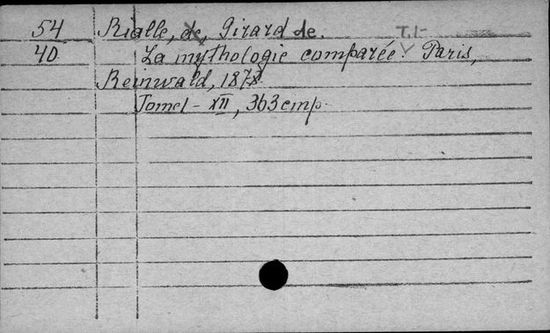 54 Rialle, de, Girard de. T.I-
40 La mythologie comparée. Paris,
Reinwald, 1878.
Tome I - XII, 363 стр.